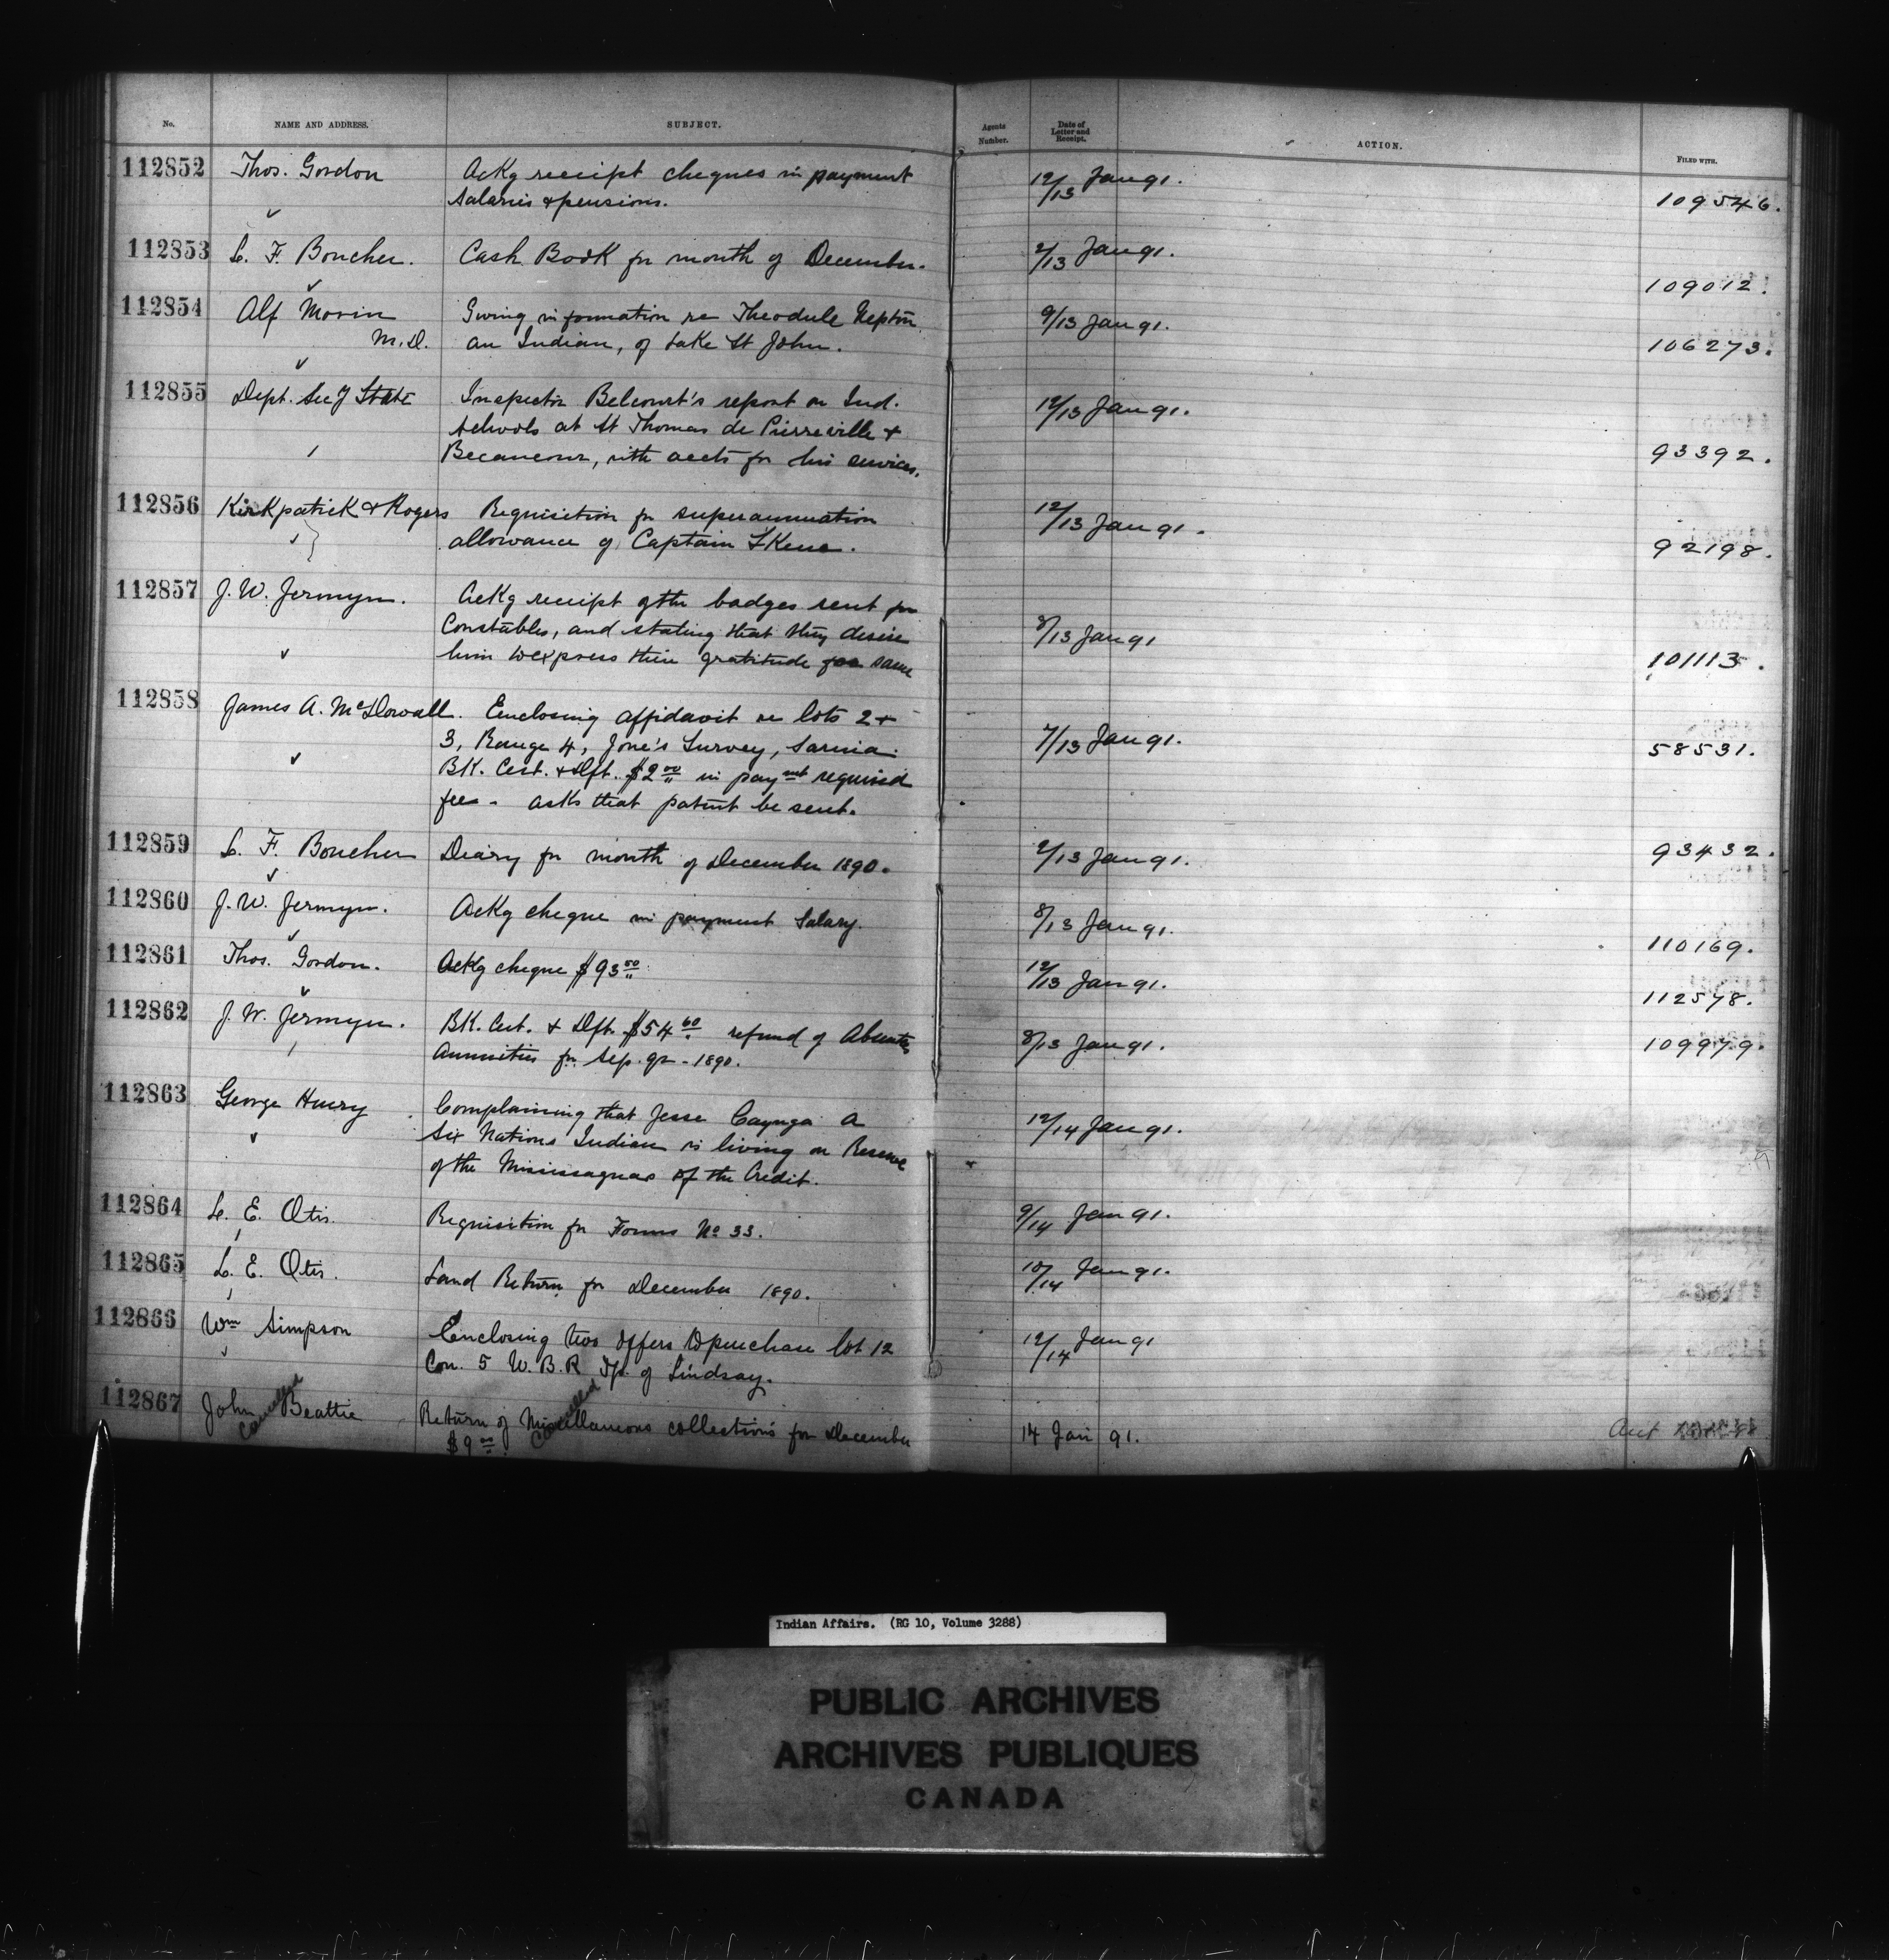 No. NAME AND ADDRESS. SUBJECT. Agents Number. Date of Letter and Receipt. ACTION. FILED WITH.
112852 Thos. Gordon Ackg receipt cheques in payment 12/13 Jan 91.
salaries & pensions. 109546.
112853 L. F. Boucher. Cash Book for month of December. 2/13 Jan 91.
109012.
112854 Alf Morin Giving information re Theodule Neptōn 9/13 Jan 91.
M.D. an Indian, of Lake St John. 106273.
112855 Dept. Sec'y State Inspector Belcourt's report on Ind. 12/13 Jan 91.
schools at St Thomas de Pierreville &
Becancour, with accts for his services. 93392.
112856 Kirkpatrick & Rogers Requisition for superannuation 12/13 Jan 91.
allowance of Captain 92198.
112857 J. W. Jermyn. Ackg receipt of the badges sent for
Constables, and stating that they desire 8/13 Jan 91
him to express their gratitude for same 101113.
112858 James A. McDowall. Enclosing affidavit re lots 2 &
3, Range 4, Jone's Survey, Sarnia. 7/13 Jan 91. 58531.
BK. Cert. & Dft. $2 00 in paymt required
fee - asks that patent be sent.
112859 L. F. Boucher Diary for month of December 1890. 2/13 Jan 91. 93432.
112860 J. W. Jermyn. Ackg cheque in payment Salary. 8/13 Jan 91.
110169.
112861 Thos. Gordon. Ackg cheque $93 00 12/13 Jan 91.
112578.
112862 J. W. Jermyn. BK. Cert. & Dft. $54 60 refund of Absentees 8/13 Jan 91. 109979.
Annuities for Sep. qr - 1890.
112863 George Henry Complaining that Jesse Cayuga a 12/14 Jan 91.
Six Nations Indian is living on Reserve
of the Mississaguas of the Credit.
112864 L. E. Otis. Requisition for Forms No 33. 9/14 Jan 91.
112865 L. E. Otis. Land Return for December 1890. 10/14 Jan 91.
112866 Wm Simpson Enclosing two offers to purchase lot 12 12/14 Jan 91
Con. 5 W. B. R Tp. of Lindsay.
112867 John Beattie Return of Miscellaneous collections for December 14 Jan 91.
Cancelled $9 00 Cancelled
Indian Affairs. (RG 10, Volume 3288)
PUBLIC ARCHIVES
ARCHIVES PUBLIQUES
CANADA